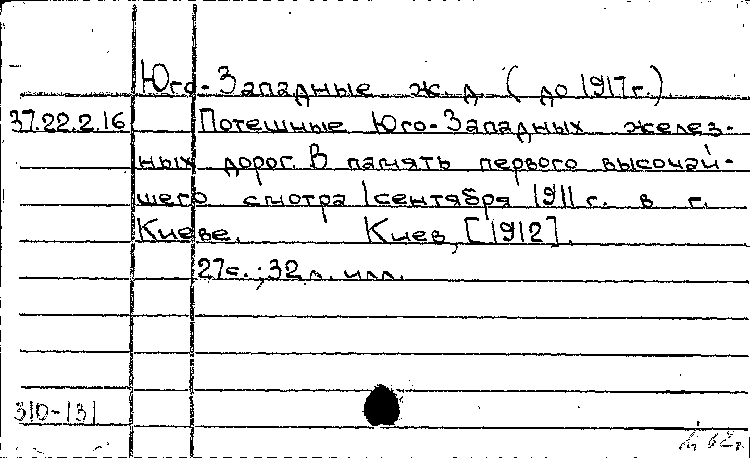 Юго-Западные ж. д. (до 1917г.)
37.22.2.16 Потешные Юго-Западных желез-
ных дорог. В память первого высочай-
шего смотра 1 сентября 1911 г. в г.
Киеве. Киев, [1912].
27с.; 32 л. илл.
310-131